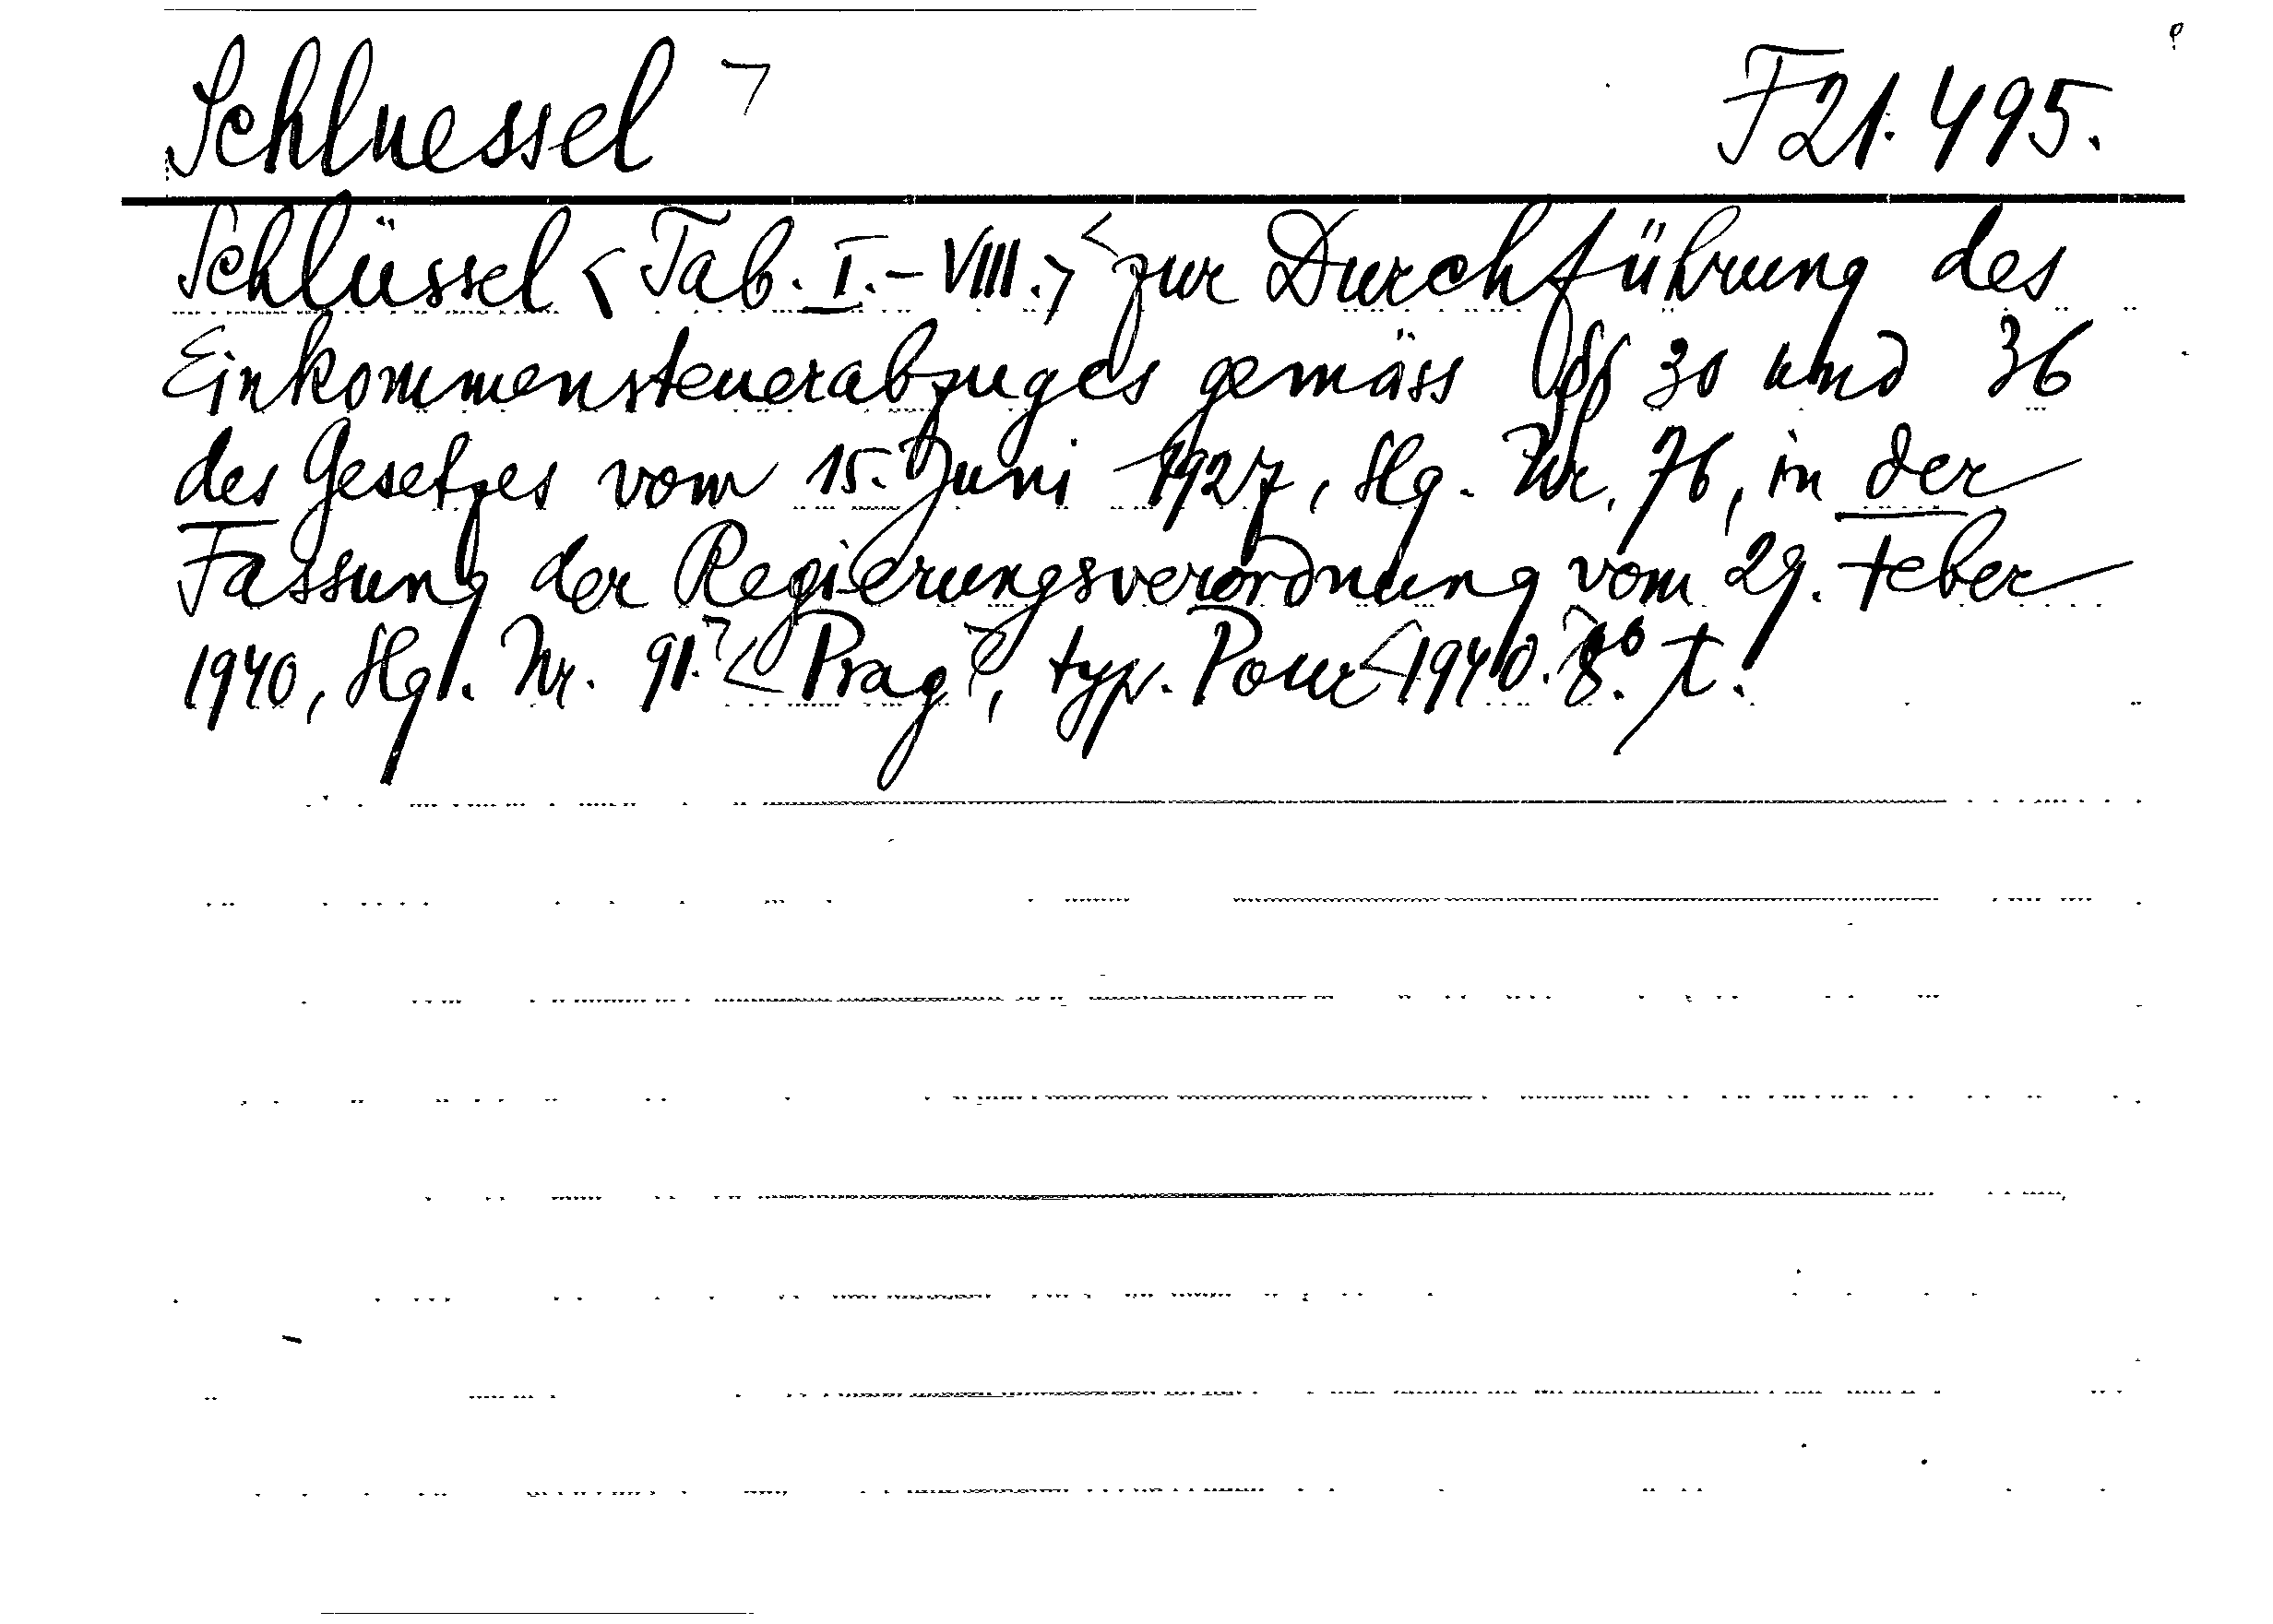 Schluessel F21.495.
Schlüssel <Tab. I.-VIII.> zur Durchführung des
Einkommensteuerabzuges gemäss §§ 30 und 36
des Gesetzes vom 15. Juni 1927, Slg. Nr. 76, in der
Fassung der Regierungsverordnung vom 29. Feber
1940, Slg. Nr. 91. Prag, typ. Pour 1940. 8°. t.